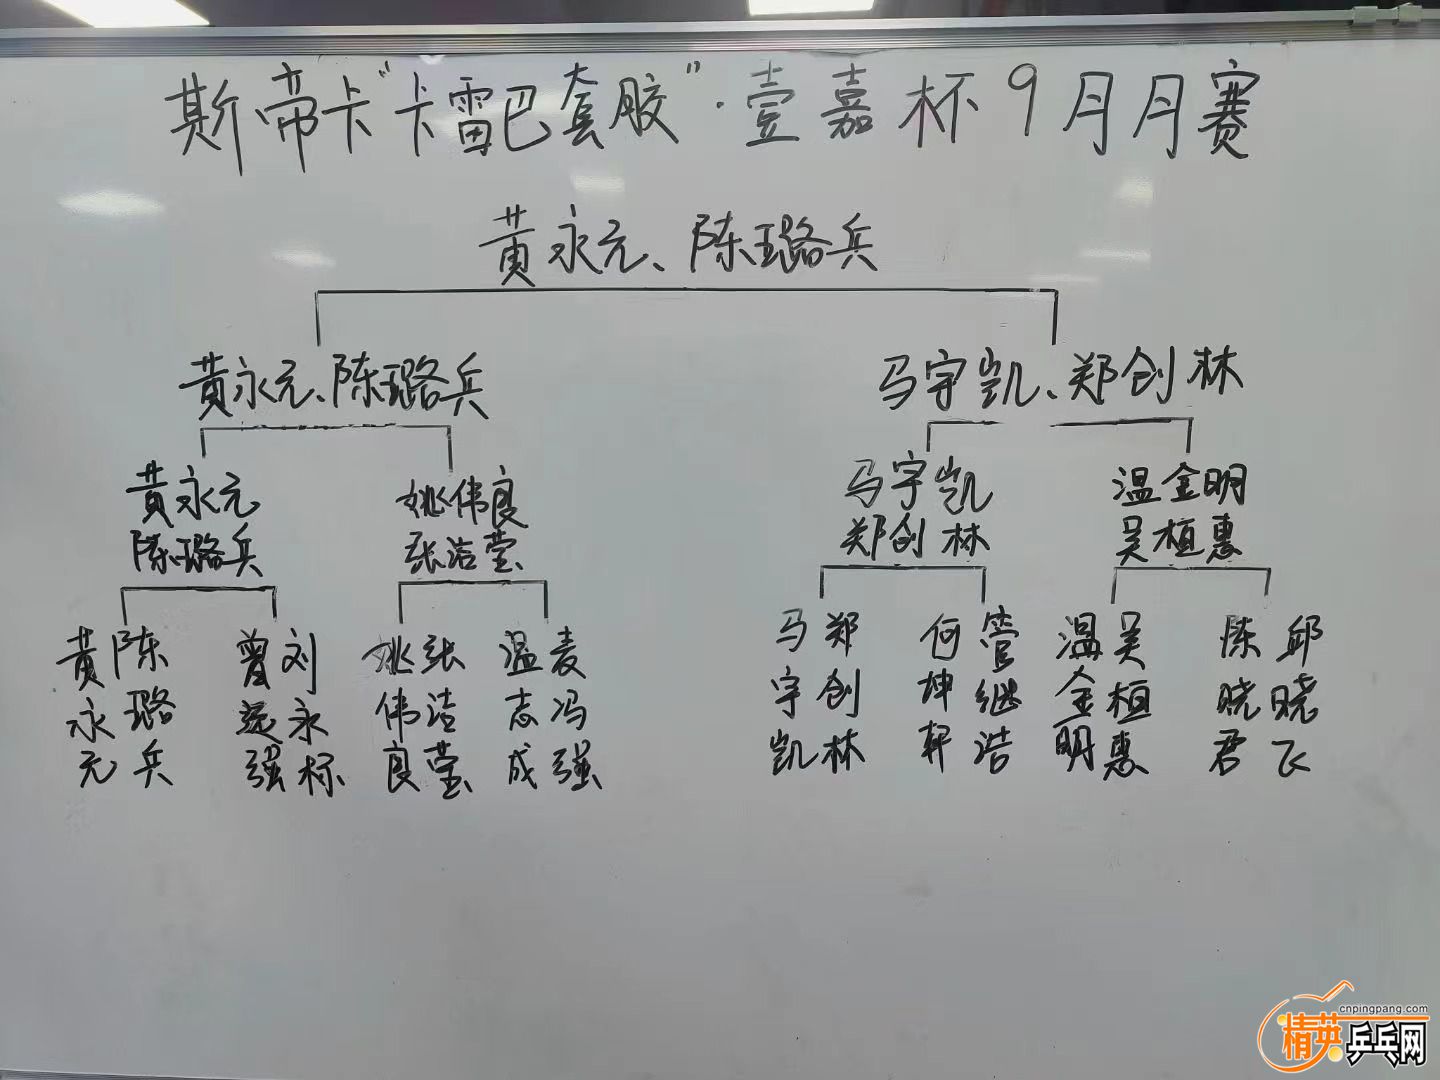 斯帝卡"卡雷巴套胶"·壹嘉杯9月月赛
黄永元、陈璐兵
黄永元、陈璐兵
马宇凯、郑创林
黄永元
陈璐兵
姚伟良
张洁莹
马宇凯
郑创林
温金明
吴植惠
黄永元
陈璐兵
曾远强
刘永标
姚伟良
张洁莹
温志成
麦冯强
马宇凯
郑创林
何坤轩
管继浩
温金明
吴植惠
陈晓君
邱晓飞
cnpingpang.com
精英乒乓网